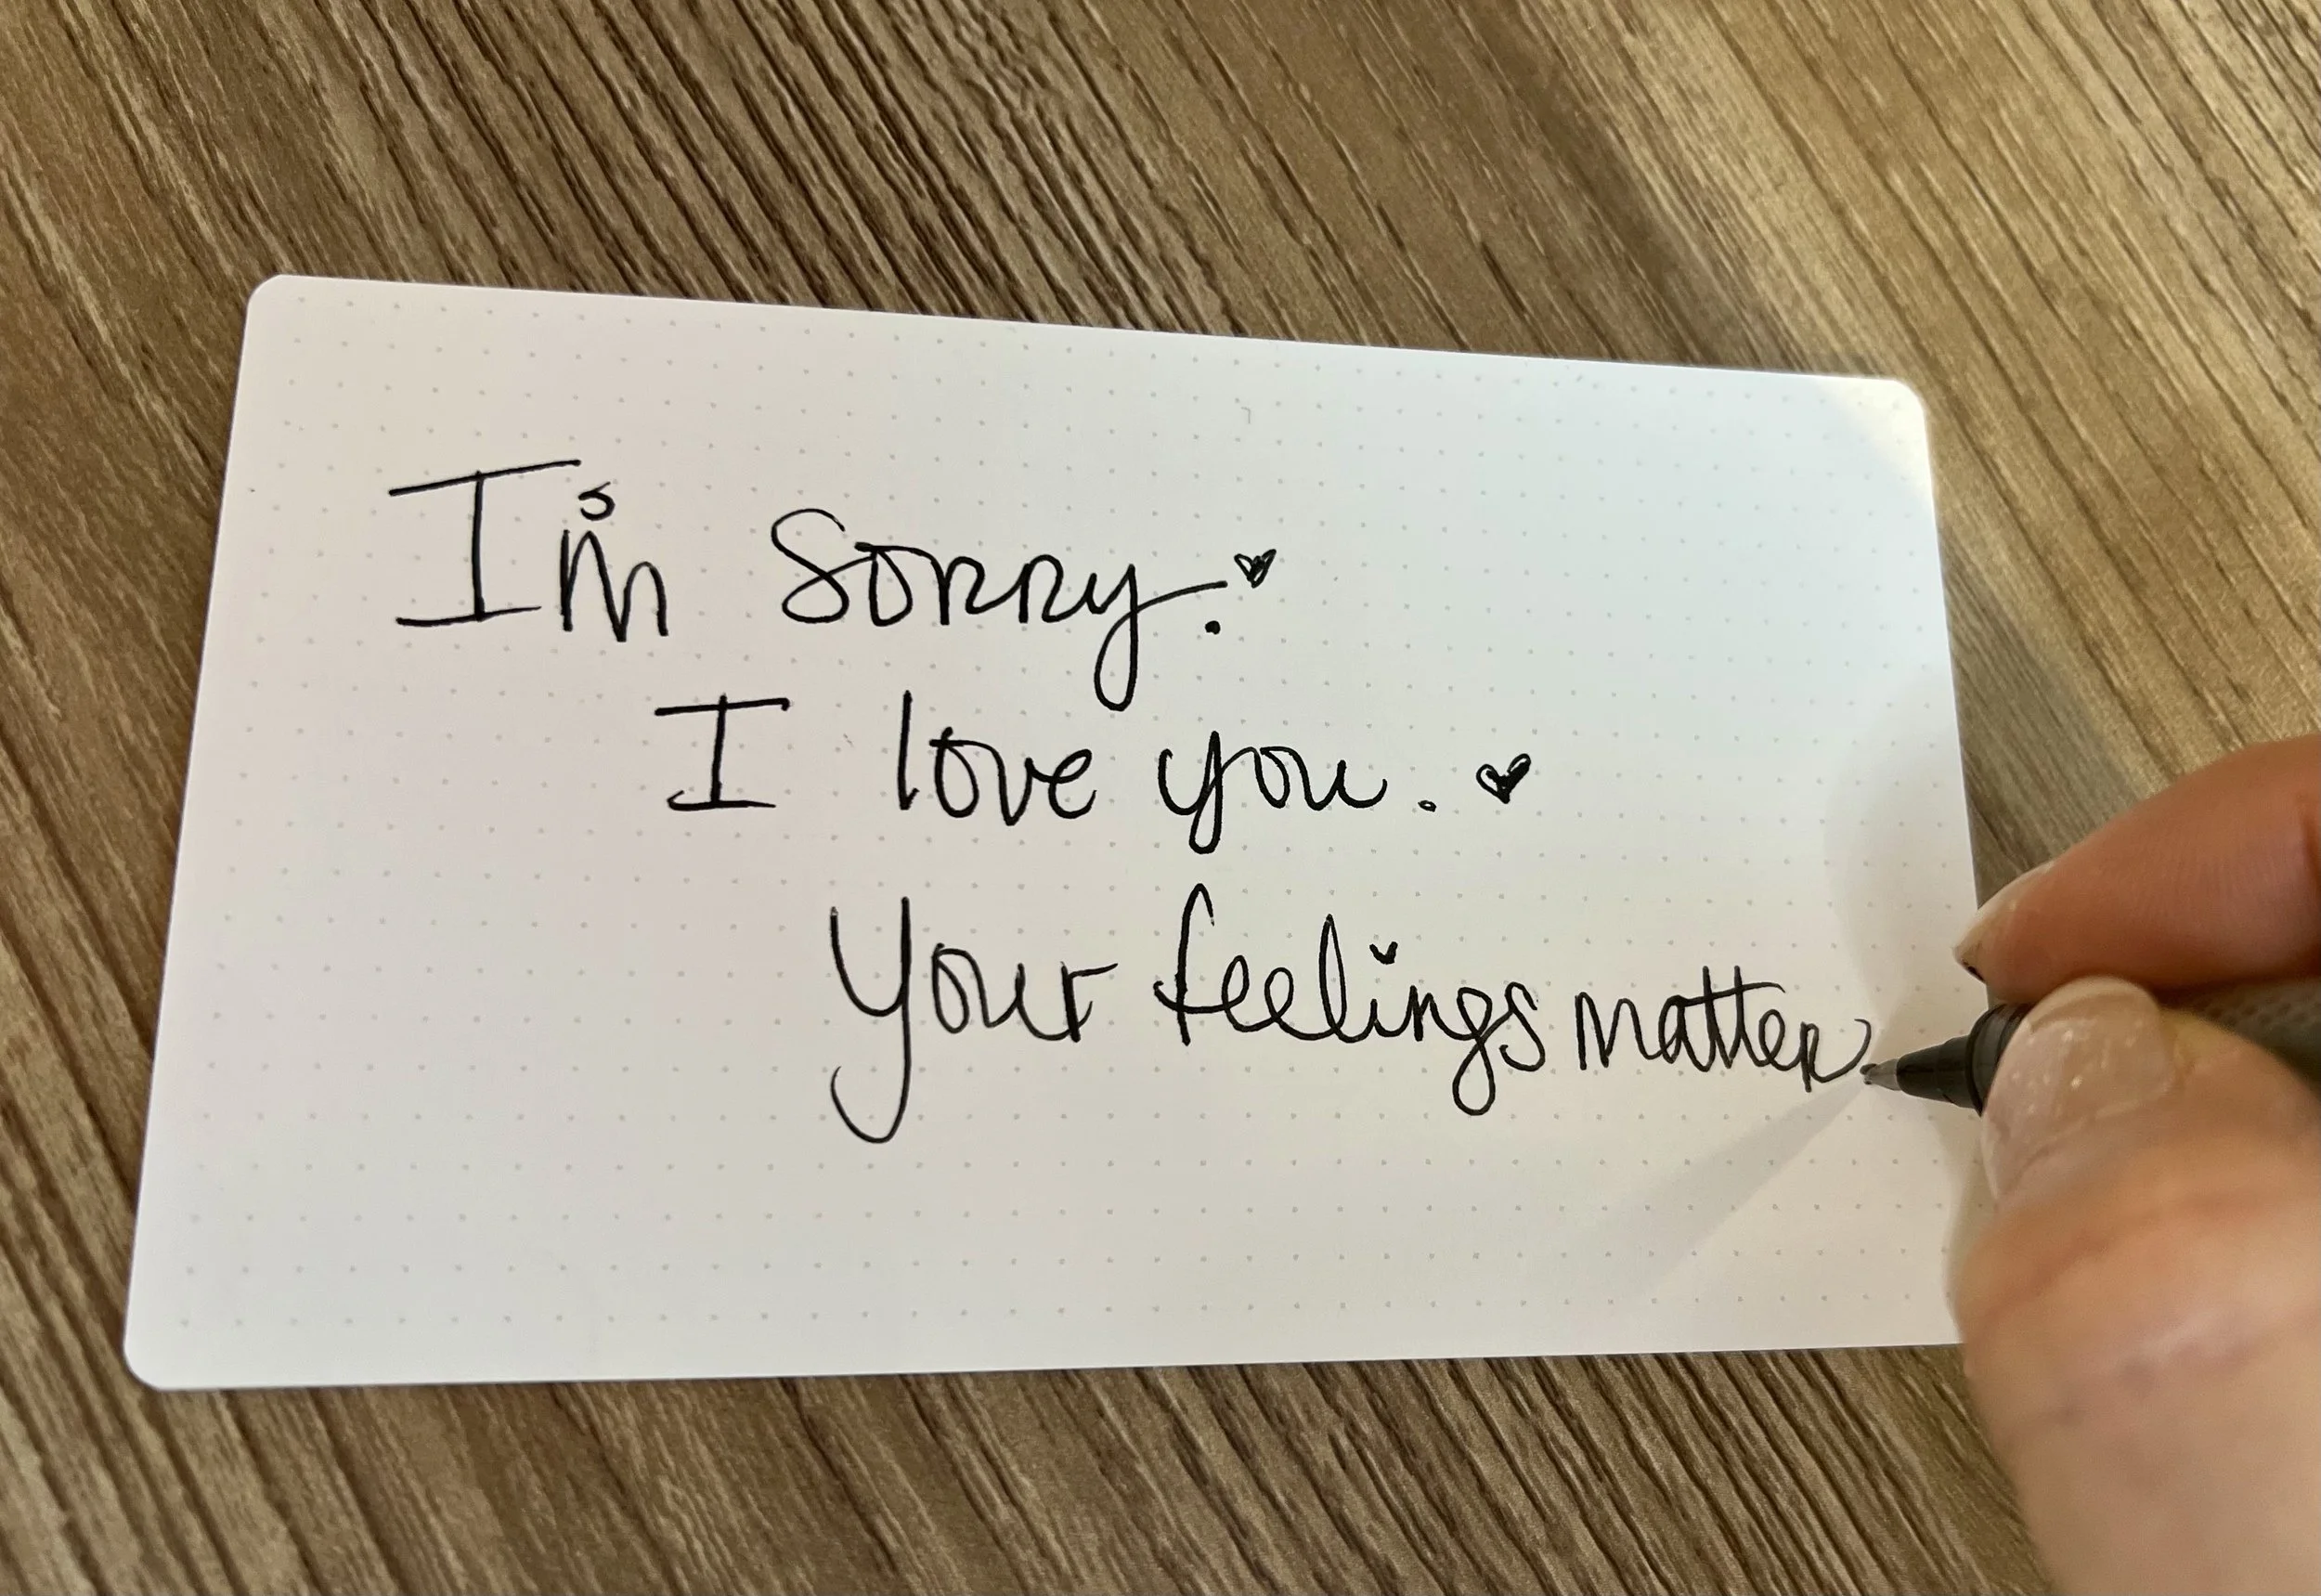 I'm sorry. ♥
I love you. ♥
Your feelings matter.